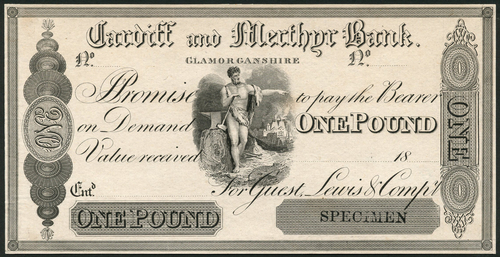 Cardiff and Merthyr Bank.
No. GLAMORGANSHIRE No.
I Promise to pay the Bearer
on Demand ONE POUND
Value received 18
Entd. For Guest, Lewis & Compy.
ONE POUND SPECIMEN
ONE